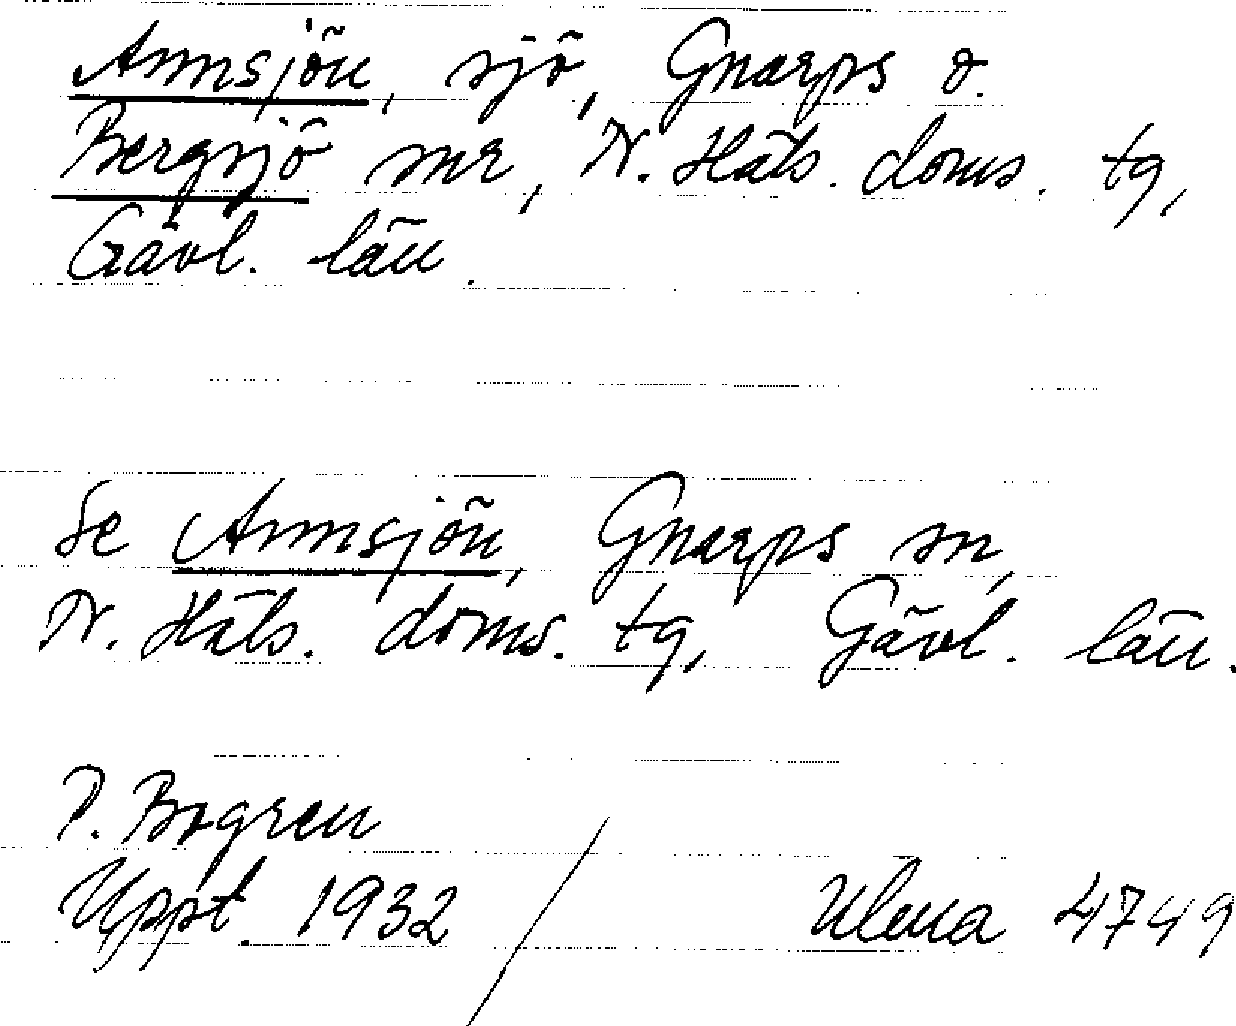 Annsjön, sjö, Gnarps o.
Bergsjö snr, N. Häls. doms. tg,
Gävl. län.
Se Annsjön, Gnarps sn,
N. Häls. doms. tg, Gävl. län.
P. Bogren
Uppt. 1932 / Ulma 4749